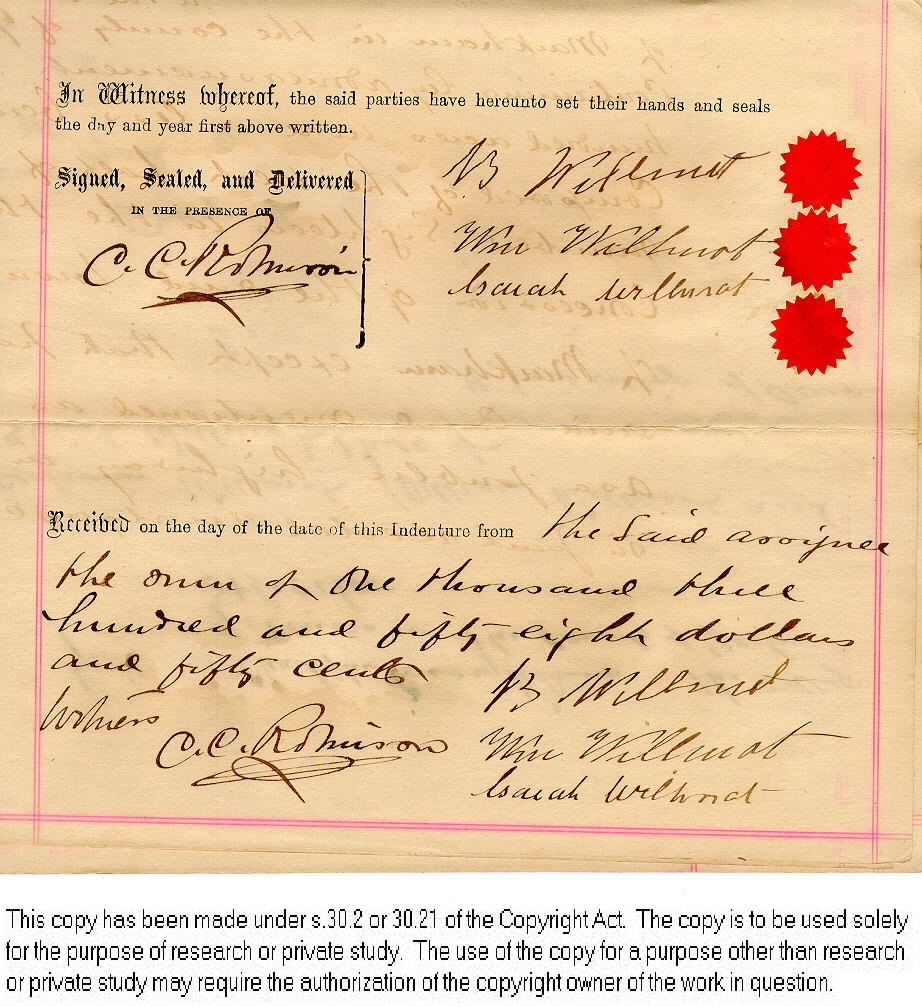 In Witness whereof, the said parties have hereunto set their hands and seals
the day and year first above written.
Signed, Sealed, and Delivered
IN THE PRESENCE OF
C. C. Robinson
B Willmot
Wm Willmot
Isaiah Willmot
Received on the day of the date of this Indenture from the said assignee
the sum of One thousand three
hundred and fifty eight dollars
and fifty cents
B Willmot
Witness
C. C. Robinson
Wm Willmot
Isaiah Willmot
This copy has been made under s.30.2 or 30.21 of the Copyright Act. The copy is to be used solely
for the purpose of research or private study. The use of the copy for a purpose other than research
or private study may require the authorization of the copyright owner of the work in question.